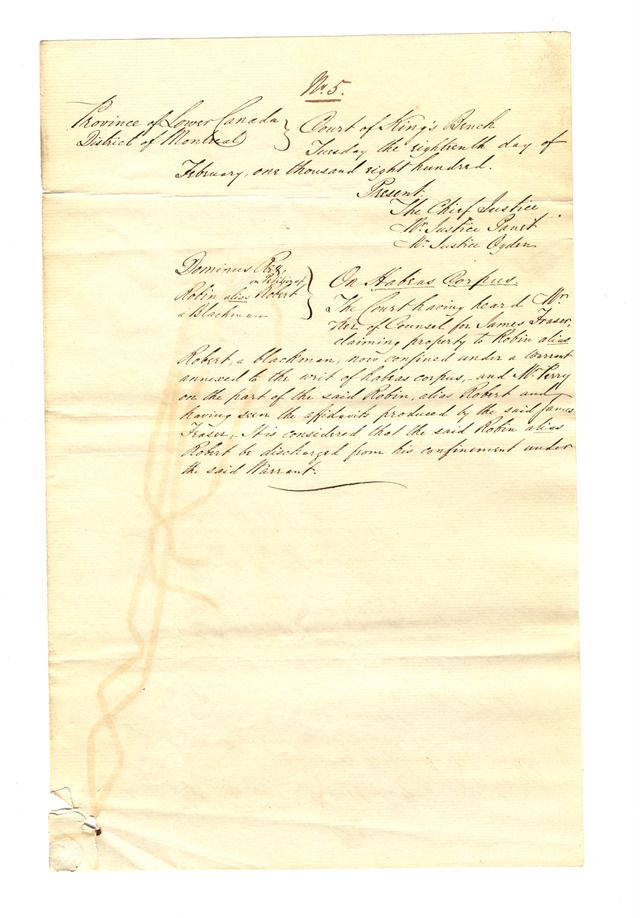 No. 5.
Province of Lower Canada } Court of King's Bench
District of Montreal Tuesday the eighteenth day of
February, one thousand eight hundred.
Present.
The Chief Justice
Mr. Justice Panet
Mr. Justice Ogden
Dominus Rex,
on Petition of
Robin alias Robert
a Blackman
} On Habeas Corpus.
The Court having heard Mr.
Ker, of Counsel for James Fraser,
claiming property to Robin alias
Robert, a blackman, now confined under a warrant
annexed to the writ of habeas corpus,- and Mr. Perry
on the part of the said Robin, alias Robert and
having seen the affidavits produced by the said James
Fraser, It is considered that the said Robin alias
Robert be discharged from his confinement under
the said Warrant.